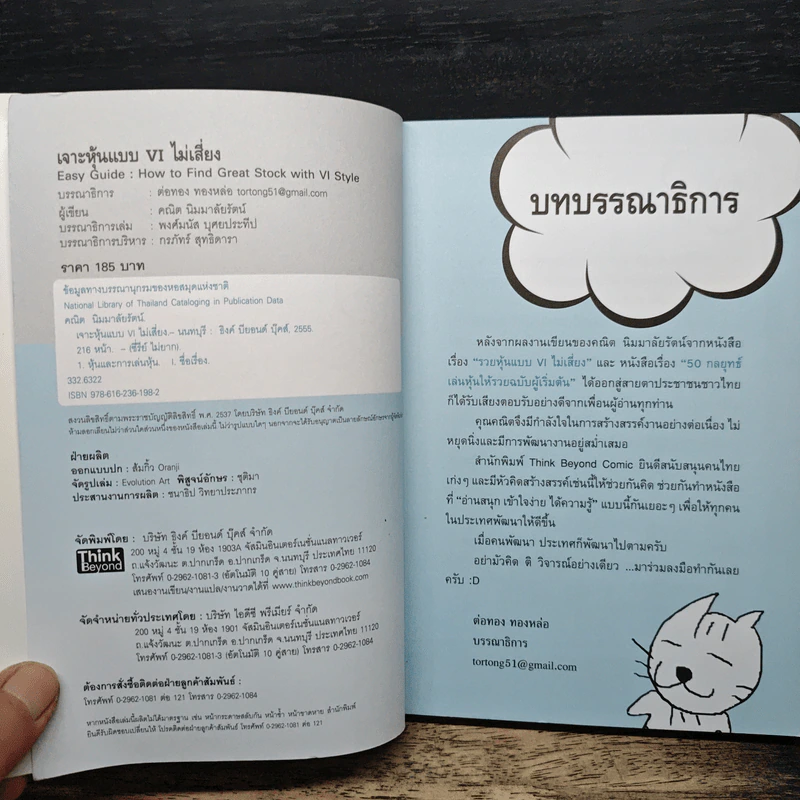 เจาะหุ้นแบบ VI ไม่เสี่ยง
Easy Guide : How to Find Great Stock with VI Style
บรรณาธิการ : ต่อทอง ทองหล่อ tortong51@gmail.com
ผู้เขียน : คณิต นิมมาลัยรัตน์
บรรณาธิการเล่ม : พงศ์มนัส บุศยประทีป
บรรณาธิการบริหาร : กรภัทร์ สุทธิดารา
ราคา 185 บาท
ข้อมูลทางบรรณานุกรมของหอสมุดแห่งชาติ
National Library of Thailand Cataloging in Publication Data
คณิต นิมมาลัยรัตน์.
เจาะหุ้นแบบ VI ไม่เสี่ยง.-- นนทบุรี : ธิงค์ บียอนด์ บุ๊คส์, 2555.
216 หน้า. -- (ซีรีย์ ไม่ยาก).
1. หุ้นและการเล่นหุ้น. I. ชื่อเรื่อง.
332.6322
ISBN 978-616-236-198-2
สงวนลิขสิทธิ์ตามพระราชบัญญัติลิขสิทธิ์ พ.ศ. 2537 โดยบริษัท ธิงค์ บียอนด์ บุ๊คส์ จำกัด
ห้ามลอกเลียนไม่ว่าส่วนใดส่วนหนึ่งของหนังสือเล่มนี้ ไม่ว่ารูปแบบใดๆ นอกจากจะได้รับอนุญาตเป็นลายลักษณ์อักษรจาก
ฝ่ายผลิต
ออกแบบปก : ส้มกิ้ว Oranji
จัดรูปเล่ม : Evolution Art พิสูจน์อักษร : ชุติมา
ประสานงานการผลิต : ชนาธิป วิทยาประภากร
จัดพิมพ์โดย : บริษัท ธิงค์ บียอนด์ บุ๊คส์ จำกัด
Think Beyond
200 หมู่ 4 ชั้น 19 ห้อง 1903A จัสมินอินเตอร์เนชั่นแนลทาวเวอร์
ถ.แจ้งวัฒนะ ต.ปากเกร็ด อ.ปากเกร็ด จ.นนทบุรี ประเทศไทย 11120
โทรศัพท์ 0-2962-1081-3 (อัตโนมัติ 10 คู่สาย) โทรสาร 0-2962-1084
เสนองานเขียน/งานแปล/งานวาดได้ที่ www.thinkbeyondbook.com
จัดจำหน่ายทั่วประเทศโดย : บริษัท ไอดีซี พรีเมียร์ จำกัด
200 หมู่ 4 ชั้น 19 ห้อง 1901 จัสมินอินเตอร์เนชั่นแนลทาวเวอร์
ถ.แจ้งวัฒนะ ต.ปากเกร็ด อ.ปากเกร็ด จ.นนทบุรี ประเทศไทย 11120
โทรศัพท์ 0-2962-1081-3 (อัตโนมัติ 10 คู่สาย) โทรสาร 0-2962-1084
ต้องการสั่งซื้อติดต่อฝ่ายลูกค้าสัมพันธ์ :
โทรศัพท์ 0-2962-1081 ต่อ 121 โทรสาร 0-2962-1084
หากหนังสือเล่มนี้ผลิตไม่ได้มาตรฐาน เช่น หน้ากระดาษสลับกัน หน้าซ้ำ หน้าขาดหาย สำนักพิมพ์
ยินดีรับผิดชอบเปลี่ยนให้ โปรดติดต่อฝ่ายลูกค้าสัมพันธ์ โทรศัพท์ 0-2962-1081 ต่อ 121
บทบรรณาธิการ
หลังจากผลงานเขียนของคณิต นิมมาลัยรัตน์จากหนังสือ
เรื่อง “รวยหุ้นแบบ VI ไม่เสี่ยง” และ หนังสือเรื่อง “50 กลยุทธ์
เล่นหุ้นให้รวยฉบับผู้เริ่มต้น” ได้ออกสู่สายตาประชาชนชาวไทย
ก็ได้รับเสียงตอบรับอย่างดีจากเพื่อนผู้อ่านทุกท่าน
คุณคณิตจึงมีกำลังใจในการสร้างสรรค์งานอย่างต่อเนื่อง ไม่
หยุดนิ่งและมีการพัฒนางานอยู่สม่ำเสมอ
สำนักพิมพ์ Think Beyond Comic ยินดีสนับสนุนคนไทย
เก่งๆ และมีหัวคิดสร้างสรรค์เช่นนี้ให้ช่วยกันคิด ช่วยกันทำหนังสือ
ที่ “อ่านสนุก เข้าใจง่าย ได้ความรู้” แบบนี้กันเยอะๆ เพื่อให้ทุกคน
ในประเทศพัฒนาให้ดีขึ้น
เมื่อคนพัฒนา ประเทศก็พัฒนาไปตามครับ
อย่ามัวคิด ติ วิจารณ์อย่างเดียว ...มาร่วมลงมือทำกันเลย
ครับ :D
ต่อทอง ทองหล่อ
บรรณาธิการ
tortong51@gmail.com